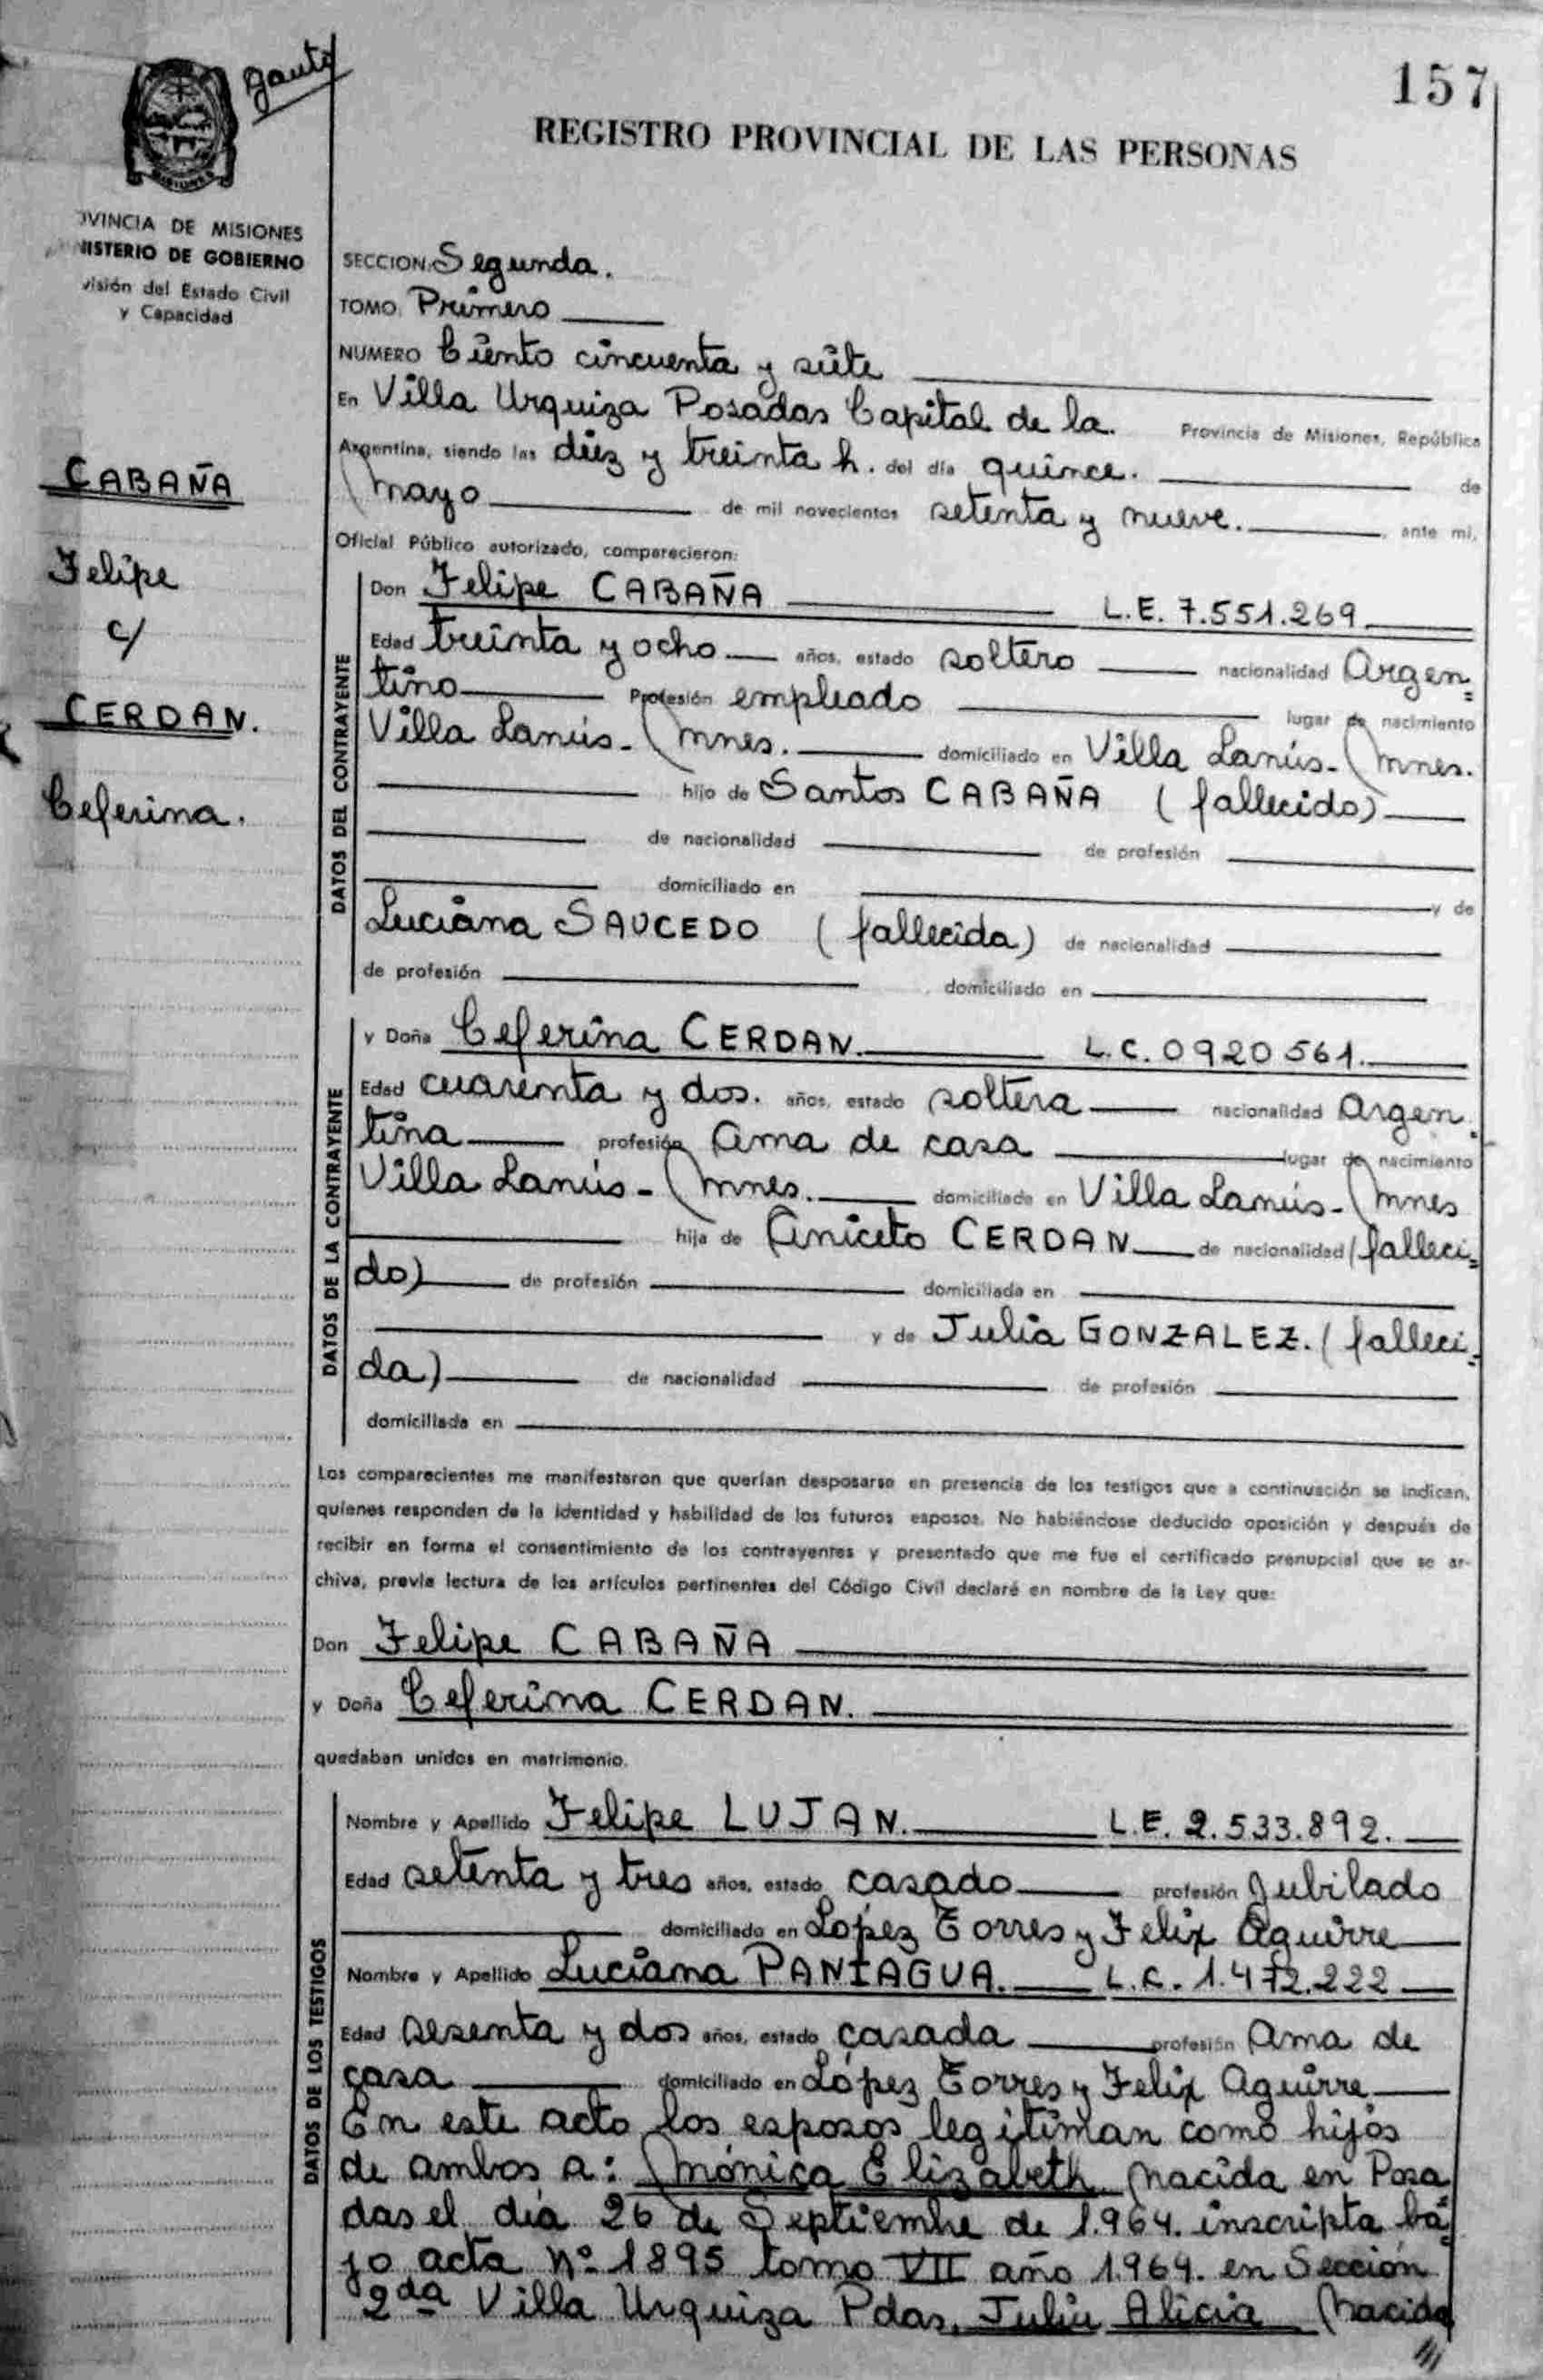 157
Gauto
REGISTRO PROVINCIAL DE LAS PERSONAS
MISIONES
OVINCIA DE MISIONES
NISTERIO DE GOBIERNO
visión del Estado Civil
y Capacidad
CABAÑA
Felipe
c/
CERDAN.
Ceferina.
SECCION: Segunda.
TOMO: Primero
NUMERO Ciento cincuenta y siete
En Villa Urquiza Posadas Capital de la. Provincia de Misiones, República
Argentina, siendo las diez y treinta h. del día quince. de
Mayo de mil novecientos setenta y nueve. , ante mi,
Oficial Público autorizado, comparecieron:
DATOS DEL CONTRAYENTE
Don Felipe CABAÑA L.E. 7.551.269
Edad treinta y ocho años, estado soltero nacionalidad Argen=
tino Profesión empleado lugar de nacimiento
Villa Lanús- Mnes. domiciliado en Villa Lanús- Mnes.
hijo de Santos CABAÑA (fallecido)
de nacionalidad de profesión
domiciliado en y de
Luciana SAUCEDO (fallecida) de nacionalidad
de profesión domiciliado en
DATOS DE LA CONTRAYENTE
y Doña Ceferina CERDAN. L.C. 0920561.
Edad cuarenta y dos. años, estado soltera nacionalidad Argen=
tina profesión Ama de casa lugar de nacimiento
Villa Lanús- Mnes. domiciliada en Villa Lanús- Mnes
hija de Aniceto CERDAN de nacionalidad (falleci=
do) de profesión domiciliada en
y de Julia GONZALEZ. (falleci=
da) de nacionalidad de profesión
domiciliada en
Los comparecientes me manifestaron que querían desposarse en presencia de los testigos que a continuación se indican,
quienes responden de la identidad y habilidad de los futuros esposos. No habiéndose deducido oposición y después de
recibir en forma el consentimiento de los contrayentes y presentado que me fue el certificado prenupcial que se ar-
chiva, previa lectura de los artículos pertinentes del Código Civil declaré en nombre de la Ley que:
Don Felipe CABAÑA
y Doña Ceferina CERDAN.
quedaban unidos en matrimonio.
DATOS DE LOS TESTIGOS
Nombre y Apellido Felipe LUJAN. L.E. 2.533.892.
Edad setenta y tres años, estado casado profesión Jubilado
domiciliado en López Torres y Felix Aguirre
Nombre y Apellido Luciana PANIAGUA. L.C. 1.472.222
Edad sesenta y dos años, estado casada profesión Ama de
casa domiciliado en López Torres y Felix Aguirre
En este acto los esposos legitiman como hijos
de ambos a: Mónica Elizabeth. Nacida en Posa
das el día 26 de Septiembre de 1.964. inscripta ba=
jo acta Nº 1895 tomo VII año 1.964. en Sección
2da Villa Urquiza Pdas, Julia Alicia Nacida